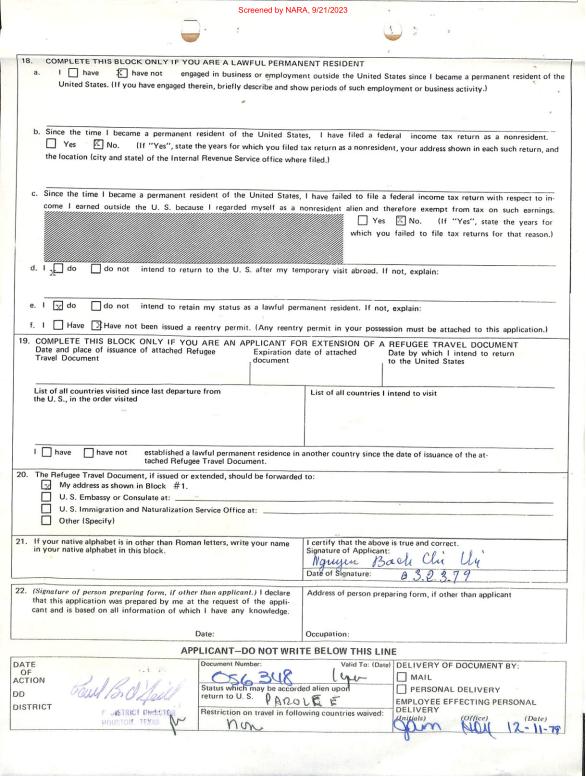 Screened by NARA, 9/21/2023
18. COMPLETE THIS BLOCK ONLY IF YOU ARE A LAWFUL PERMANENT RESIDENT
a. I have have not engaged in business or employment outside the United States since I became a permanent resident of the
United States. (If you have engaged therein, briefly describe and show periods of such employment or business activity.)
b. Since the time I became a permanent resident of the United States, I have filed a federal income tax return as a nonresident.
Yes No. (If "Yes", state the years for which you filed tax return as a nonresident, your address shown in each such return, and
the location (city and state) of the Internal Revenue Service office where filed.)
c. Since the time I became a permanent resident of the United States, I have failed to file a federal income tax return with respect to in-
come I earned outside the U. S. because I regarded myself as a nonresident alien and therefore exempt from tax on such earnings.
Yes No. (If "Yes", state the years for
which you failed to file tax returns for that reason.)
d. I do do not intend to return to the U. S. after my temporary visit abroad. If not, explain:
e. I do do not intend to retain my status as a lawful permanent resident. If not, explain:
f. I Have Have not been issued a reentry permit. (Any reentry permit in your possession must be attached to this application.)
19. COMPLETE THIS BLOCK ONLY IF YOU ARE AN APPLICANT FOR EXTENSION OF A REFUGEE TRAVEL DOCUMENT
Date and place of issuance of attached Refugee
Travel Document
Expiration date of attached
document
Date by which I intend to return
to the United States
List of all countries visited since last departure from
the U. S., in the order visited
List of all countries I intend to visit
I have have not established a lawful permanent residence in another country since the date of issuance of the at-
tached Refugee Travel Document.
20. The Refugee Travel Document, if issued or extended, should be forwarded to:
My address as shown in Block #1.
U. S. Embassy or Consulate at:
U. S. Immigration and Naturalization Service Office at:
Other (Specify)
21. If your native alphabet is in other than Roman letters, write your name
in your native alphabet in this block.
I certify that the above is true and correct.
Signature of Applicant:
Nguyen Bach Chi
Date of Signature:
22. (Signature of person preparing form, if other than applicant.) I declare
that this application was prepared by me at the request of the appli-
cant and is based on all information of which I have any knowledge.
Date:
Address of person preparing form, if other than applicant
Occupation:
APPLICANT—DO NOT WRITE BELOW THIS LINE
DATE
OF
ACTION
DD
DISTRICT
DISTRICT DIRECTOR
HOUSTON, TEXAS
Document Number:
056348
Valid To: (Date)
1 yr
Status which may be accorded alien upon
return to U. S.
PAROLEE
Restriction on travel in following countries waived:
non
DELIVERY OF DOCUMENT BY:
MAIL
PERSONAL DELIVERY
EMPLOYEE EFFECTING PERSONAL
DELIVERY
(Initials) (Office) (Date)
12-11-79